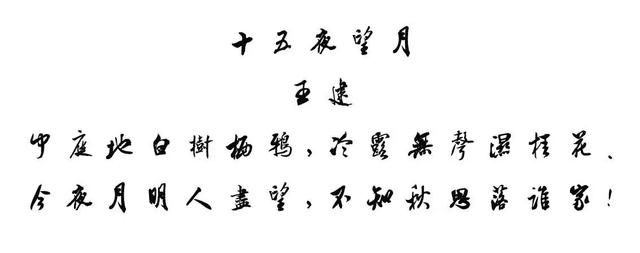 十五夜望月
王建
中庭地白樹栖鴉，冷露無聲濕桂花。
今夜月明人盡望，不知秋思落誰家！